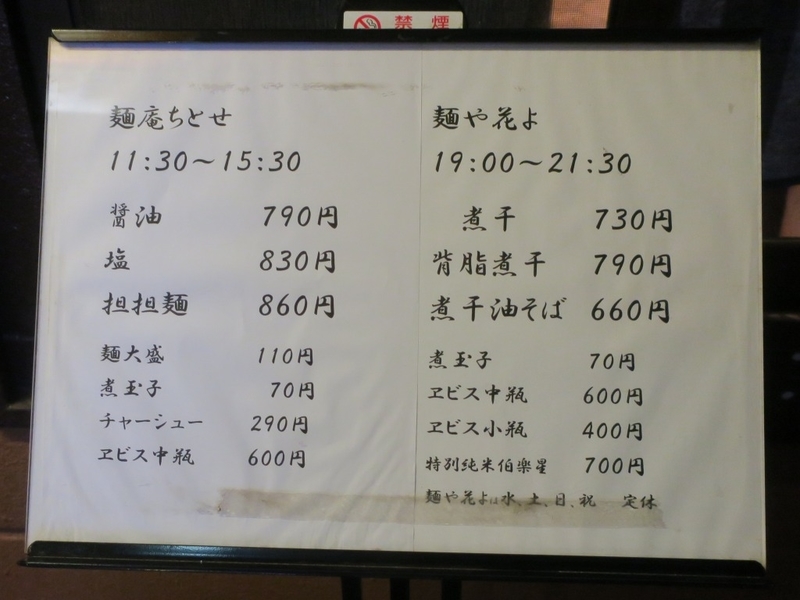 禁煙
麺庵ちとせ
11:30～15:30
醤油 790円
塩 830円
担担麺 860円
麺大盛 110円
煮玉子 70円
チャーシュー 290円
ヱビス中瓶 600円
麺や花よ
19:00～21:30
煮干 730円
背脂煮干 790円
煮干油そば 660円
煮玉子 70円
ヱビス中瓶 600円
ヱビス小瓶 400円
特別純米伯楽星 700円
麺や花よは水、土、日、祝 定休